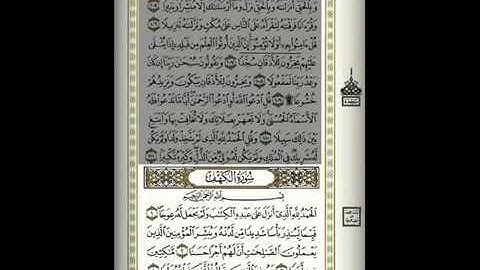 وَبِالْحَقِّ أَنزَلْنَٰهُ وَبِالْحَقِّ نَزَلَ وَمَا أَرْسَلْنَٰكَ إِلَّا مُبَشِّرًا وَنَذِيرًا ١٠٥
وَقُرْءَانًا فَرَقْنَٰهُ لِتَقْرَأَهُ عَلَى النَّاسِ عَلَىٰ مُكْثٍ وَنَزَّلْنَٰهُ تَنزِيلًا ١٠٦
قُلْ ءَامِنُوا بِهِ أَوْ لَا تُؤْمِنُوا إِنَّ الَّذِينَ أُوتُوا الْعِلْمَ مِن قَبْلِهِ إِذَا يُتْلَىٰ
عَلَيْهِمْ يَخِرُّونَ لِلْأَذْقَانِ سُجَّدًا ١٠٧ وَيَقُولُونَ سُبْحَٰنَ رَبِّنَا إِن كَانَ
وَعْدُ رَبِّنَا لَمَفْعُولًا ١٠٨ وَيَخِرُّونَ لِلْأَذْقَانِ يَبْكُونَ وَيَزِيدُهُمْ
خُشُوعًا ۩ ١٠٩ قُلِ ادْعُوا اللَّهَ أَوِ ادْعُوا الرَّحْمَٰنَ أَيًّا مَّا تَدْعُوا فَلَهُ
الْأَسْمَاءُ الْحُسْنَىٰ وَلَا تَجْهَرْ بِصَلَاتِكَ وَلَا تُخَافِتْ بِهَا وَابْتَغِ
بَيْنَ ذَٰلِكَ سَبِيلًا ١١٠ وَقُلِ الْحَمْدُ لِلَّهِ الَّذِي لَمْ يَتَّخِذْ وَلَدًا وَلَمْ يَكُن
لَّهُ شَرِيكٌ فِي الْمُلْكِ وَلَمْ يَكُن لَّهُ وَلِيٌّ مِّنَ الذُّلِّ وَكَبِّرْهُ تَكْبِيرًا ١١١
سُورَةُ الْكَهْفِ
بِسْمِ اللَّهِ الرَّحْمَٰنِ الرَّحِيمِ
الْحَمْدُ لِلَّهِ الَّذِي أَنزَلَ عَلَىٰ عَبْدِهِ الْكِتَٰبَ وَلَمْ يَجْعَل لَّهُ عِوَجَا ١
قَيِّمًا لِّيُنذِرَ بَأْسًا شَدِيدًا مِّن لَّدُنْهُ وَيُبَشِّرَ الْمُؤْمِنِينَ الَّذِينَ
يَعْمَلُونَ الصَّٰلِحَٰتِ أَنَّ لَهُمْ أَجْرًا حَسَنًا ٢ مَّٰكِثِينَ